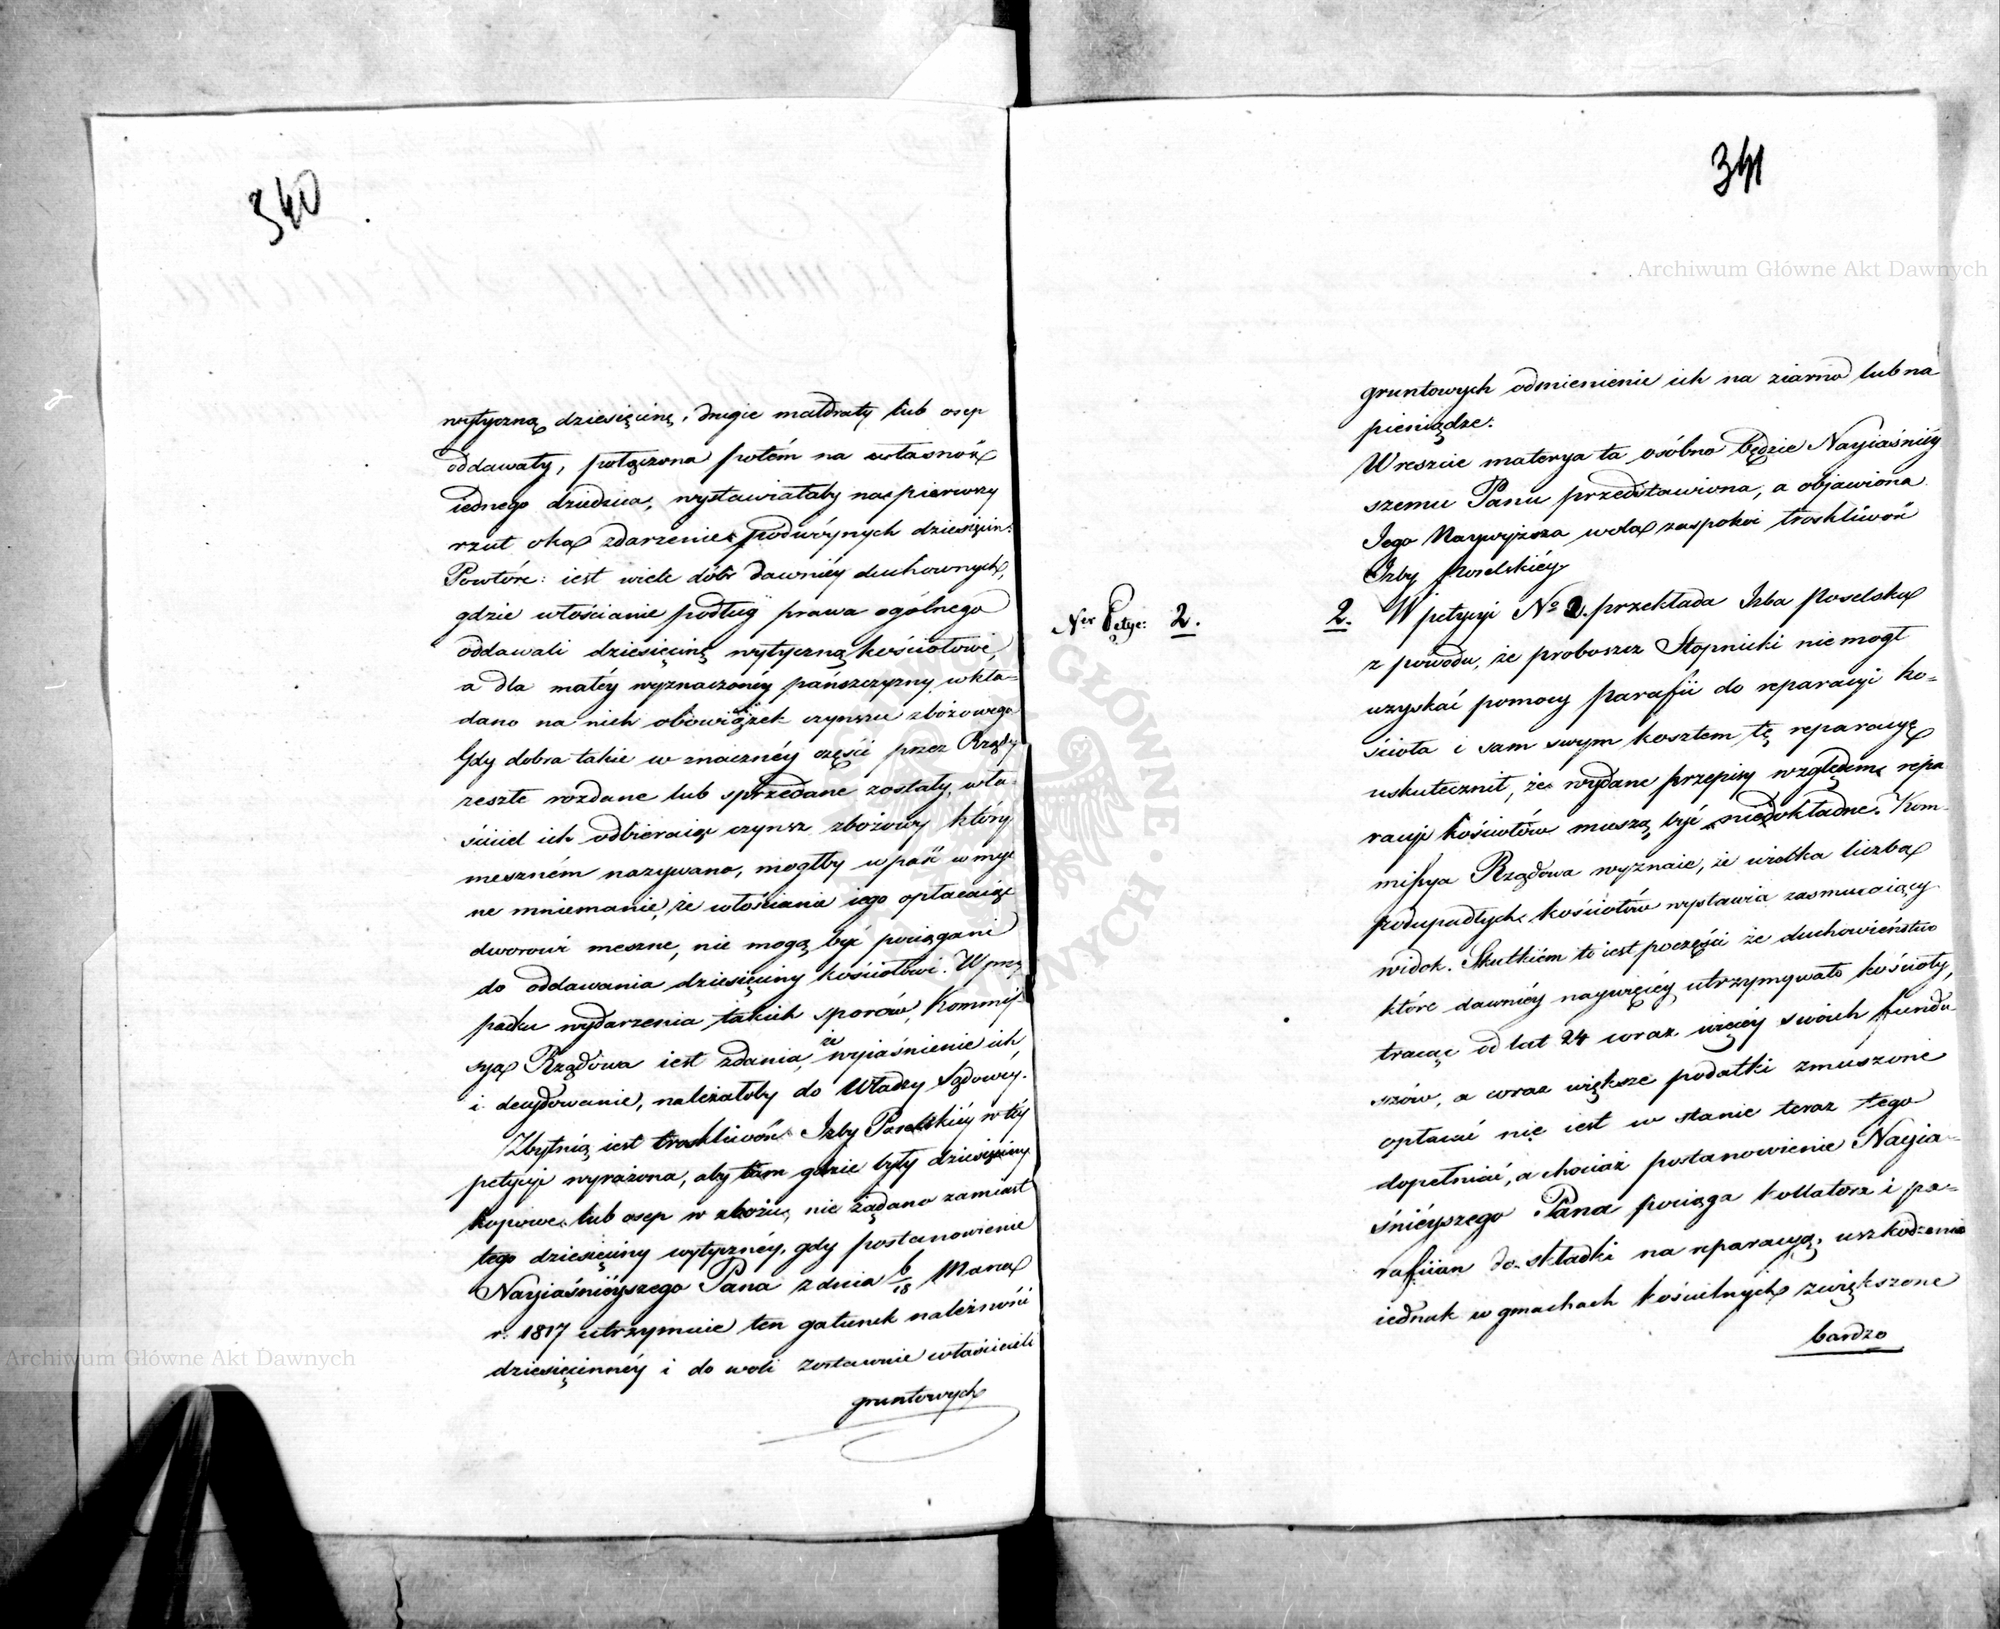 340
wytyczną dziesięcinę, drugie maldraty lub osep
oddawały, połączona potém na własność
iednego dziedzica, wystawiałaby na pierwszy
rzut oka zdarzenie podwóynych dziesięcin:
Powtóre: iest wiele dóbr dawniéy duchownych,
gdzie włościanie podług prawa ogólnego
oddawali dziesięcinę wytyczną kościołowi,
a dla małéy wyznaczonéy pańszczyzny wkła=
dano na nich obowiązek czynszu zbożowego
Gdy dobra takie w znacznéy części przez Rządy
zeszłe rozdane lub sprzedane zostały, wła=
ściciel ich odbieraiąc czynsz zbożowy który
meszném nazywano, mogłby wpaść w myl
ne mniemanie, że włościanie iego opłacaiąc
dworowi meszne, nie mogą być pociągani
do oddawania dziesięciny kościołowi. W przy
padku wydarzenia takich sporów, Kommis
sya Rządowa iest zdania, że wyiaśnienie ich
i decydowanie, należałoby do Władzy Sądowéy.
Zbytnią iest troskliwość Izby Poselskiéy w téy
petycyi wyrażona, aby tam gdzie były dziesięciny
kopowe lub osep w zbożu, nie żądano zamiast
tego dziesięciny wytycznéy, gdy postanowienie
Nayiaśniéyszego Pana z dnia 6/18 Marca
r. 1817 utrzymuie ten gatunek należności
dziesięcinnéy i do woli zostawuie właścicieli
gruntowych
341
gruntowych odmienienie ich na ziarno lub na
pieniądze.
Wreszcie materya ta osóbno będzie Nayiaśniéy
szemu Panu przedstawiona, a objawiona
Jego Naywyższa wola zaspokoi troskliwość
Izby Poselskiéy
Ner Petyc: 2.
2. W petycyi No 2. przekłada Izba Poselska
z powodu, że proboszcz Stopnicki nie mogł
uzyskać pomocy parafii do reparacyi ko=
ścioła i sam swym kosztem tę reparacyę
uskutecznił, że wydane przepisy względem repa
racyi kościołów muszą być niedokładne. Kom=
missya Rządowa wyznaie, że wielka liczba
podupadłych kościołów wystawia zasmucaiący
widok. Skutkiem to iest poczęści że duchowieństwo
które dawniéy naywięcéy utrzymywało kościoły,
tracąc od lat 24 coraz więcéy swoich fundu
szów, a coraz większe podatki zmuszone
opłacać nie iest w stanie teraz tego
dopełniać, a chociaż postanowienie Nayia=
śniéyszego Pana pociąga kollatora i pa=
rafiian do składki na reparacyą, uszkodzenia
iednak w gmachach kościelnych zwiększone
bardzo
Archiwum Główne Akt Dawnych
Archiwum Główne Akt Dawnych
ARCHIWUM GŁÓWNE AKT DAWNYCH